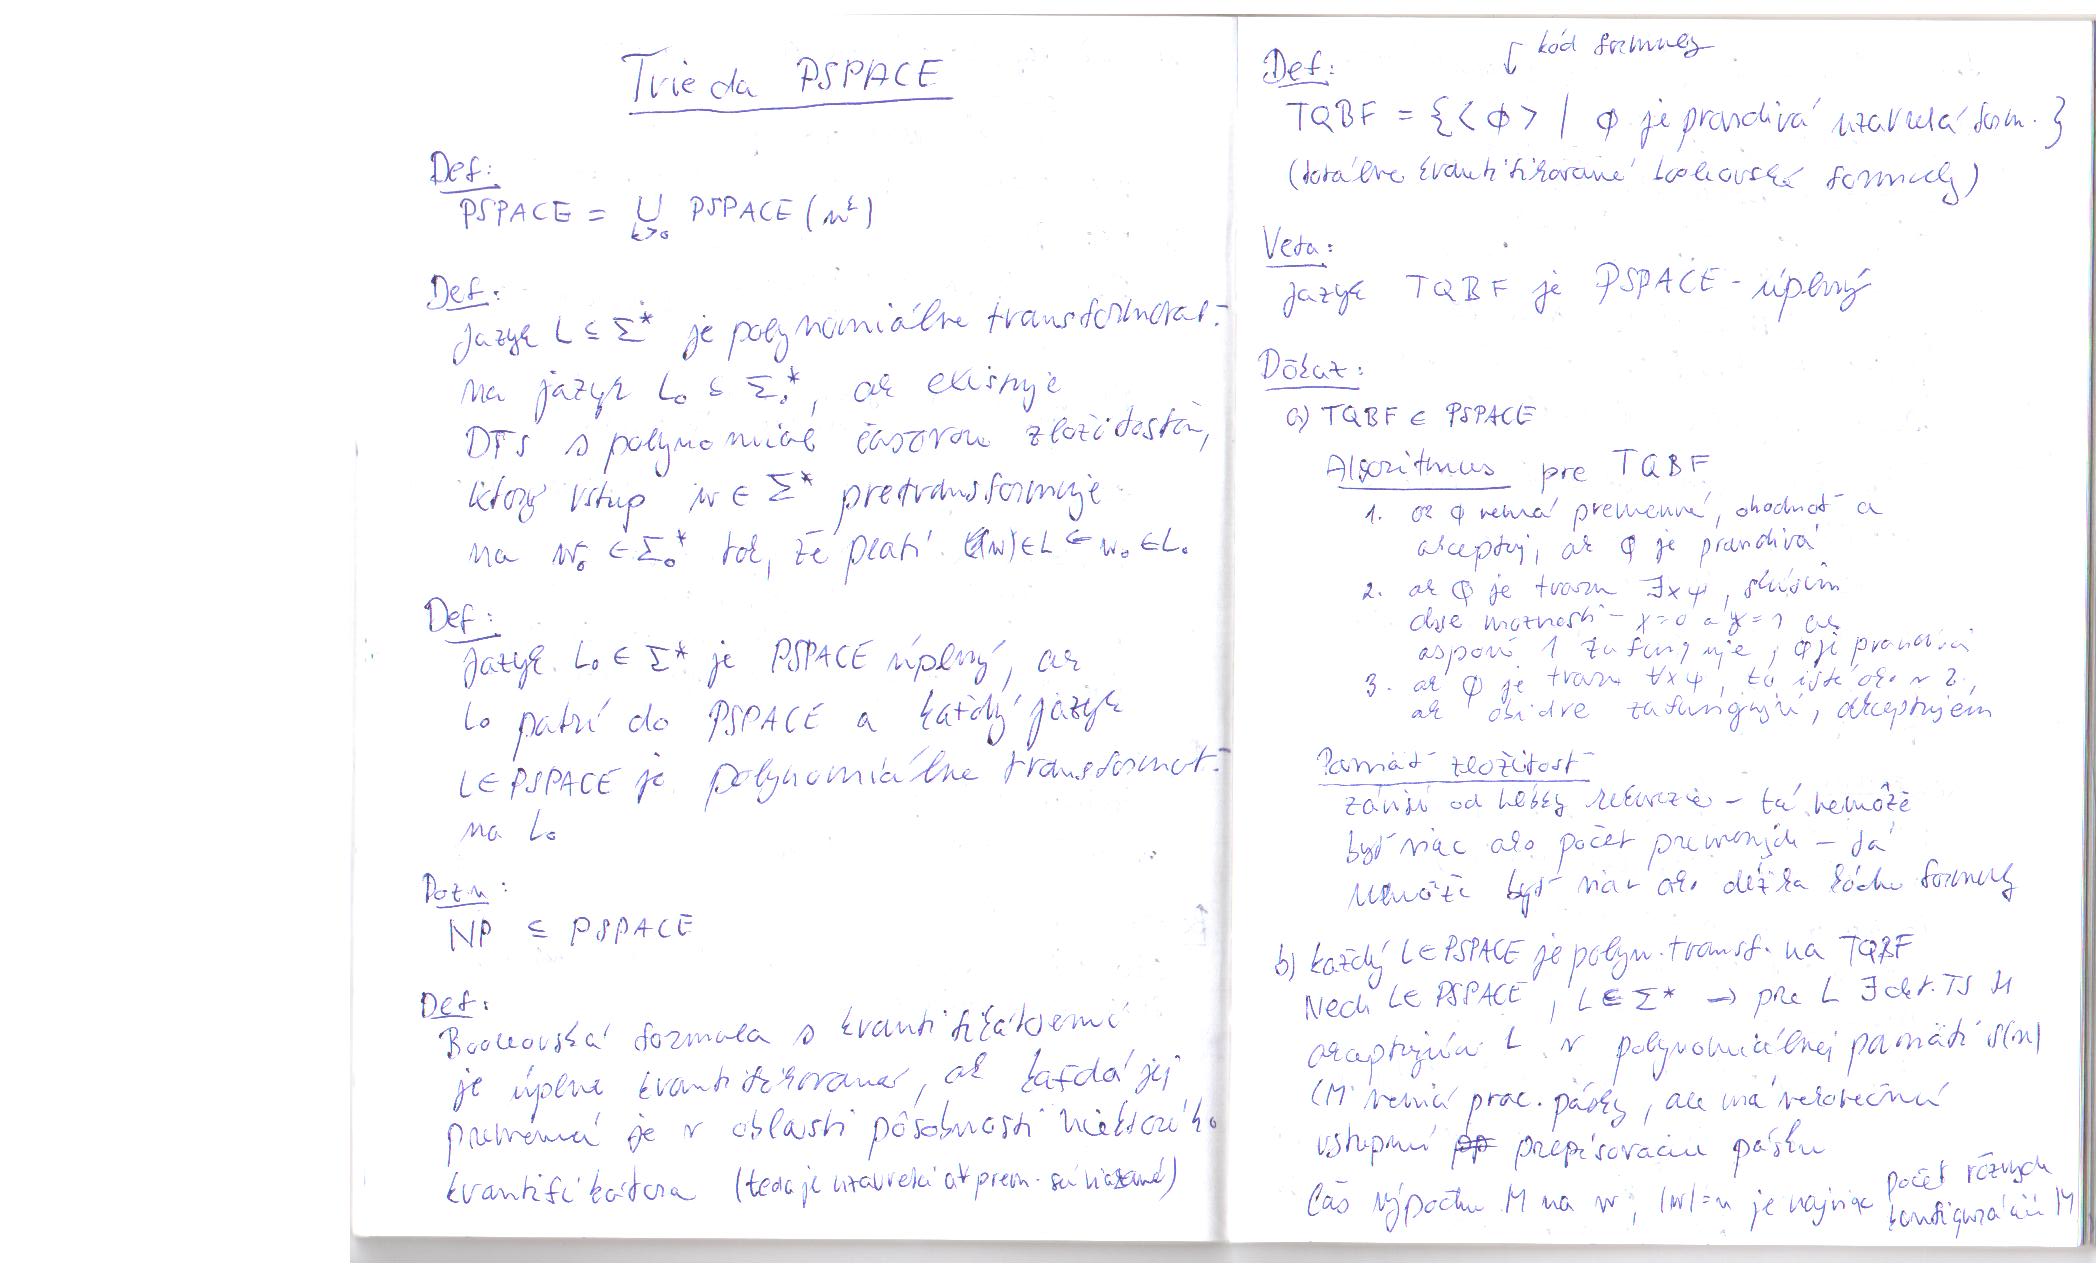 Trieda PSPACE
Def:
PSPACE = ∪ PSPACE (n^k)
k>0
Def:
Jazyk L ⊆ Σ* je polynomiálne transformovat.
na jazyk L₀ ⊆ Σ₀*, ak existuje
DTS s polynomiál časovou zložitosťou,
ktorý vstup w ∈ Σ* pretransformuje
na w₀ ∈ Σ₀* tak, že platí w ∈ L w₀ ∈ L₀
Def:
Jazyk L₀ ∈ Σ* je PSPACE úplný, ak
L₀ patrí do PSPACE a každý jazyk
L ∈ PSPACE je polynomiálne transformat.
na L₀
Pozn:
NP ⊆ PSPACE
Def:
Booleovská formula s kvantifikátormi
je úplne kvantifikovaná, ak každá jej
premenná je v oblasti pôsobnosti niektorého
kvantifikátora (teda je uzavretá ak prem. sú viazané)
kód formuly
Def:
TQBF = {<φ> | φ je pravdivá uzavretá form. }
(totálne kvantifikované booleovské formuly)
Veta:
Jazyk TQBF je PSPACE - úplný
Dôkaz:
a) TQBF ∈ PSPACE
Algoritmus pre TQBF
1. ak φ nemá premenné, ohodnoť a
akceptuj, ak φ je pravdivá
2. ak φ je tvaru ∃xψ, skúsim
dve možnosti - x=0 a x=1 ak
aspoň 1 zafunguje, φ je pravdivá
3. ak φ je tvaru ∀xψ, to isté ako v 2,
ak obidve zafungujú, akceptujem
Pamäť zložitosť
závisí od hĺbky rekurzie - tá nemôže
byť viac ako počet premenných - tá
nemôže byť viac ako dĺžka kódu formuly
b) každý L ∈ PSPACE je polyn. transf. na TQBF
Nech L ∈ PSPACE, L ∈ Σ* → pre L ∃ det. TS M
akceptujúci L v polynomiálnej pamäti s(n)
(M nemá prac. pásky, ale má nekonečnú
vstupnú prepisovaciu pásku
Čas výpočtu M na w, |w|=n je najviac počet rôznych
konfigurácií M